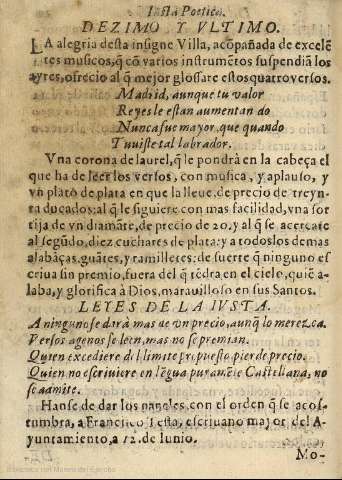 Iusta Poetica.
DEZIMO Y VLTIMO.
LA alegria desta insigne Villa, acõpañada de excelẽ
tes musicos, q̃ cõ varios instrumẽtos suspendiã los
ayres, ofrecio al q̃ mejor glossare estos quatro versos.
Madrid, aunque tu valor
Reyes le estan aumentando
Nunca fue mayor, que quando
Tuuiste tal labrador.
Vna corona de laurel, q̃ le pondrà en la cabeça el
que ha de leer los versos, con musica, y aplauso, y
vn plato de plata en que la lleue, de precio de treyn
ta ducados: al q̃ le siguiere con mas facilidad, vna sor
tija de vn diamãte, de precio de 20. y al q̃ se acercare
al segũdo, diez cuchares de plata: y a todos los demas
alabãças, guãtes, y ramilletes: de suerte q̃ ninguno es
criua sin premio, fuera del q̃ tẽdrà en el cielo, quiẽ a-
laba, y glorifica à Dios, marauilloso en sus Santos.
LEYES DE LA IVSTA.
A ninguno se darà mas de vn precio, aunq̃ lo merezca.
Versos agenos se leen, mas no se premian.
Quien excediere del limite propuesto, pierde precio.
Quien no escriuiere en lẽgua puramẽte Castellana, no
se admite.
Hanse de dar los papeles con el orden q̃ se acos-
tumbra, a Francisco Testa, escriuano mayor del A-
yuntamiento, a 12. de Iunio.
Mo-
Biblioteca del Museo del Ejército